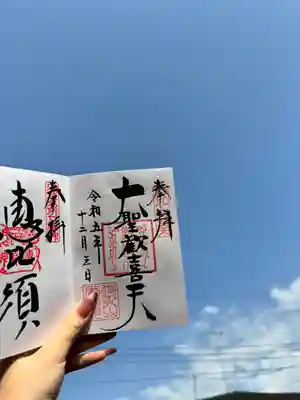 奉拝
大聖歓喜天
令和五年
十二月三日
奉拝
恵比須